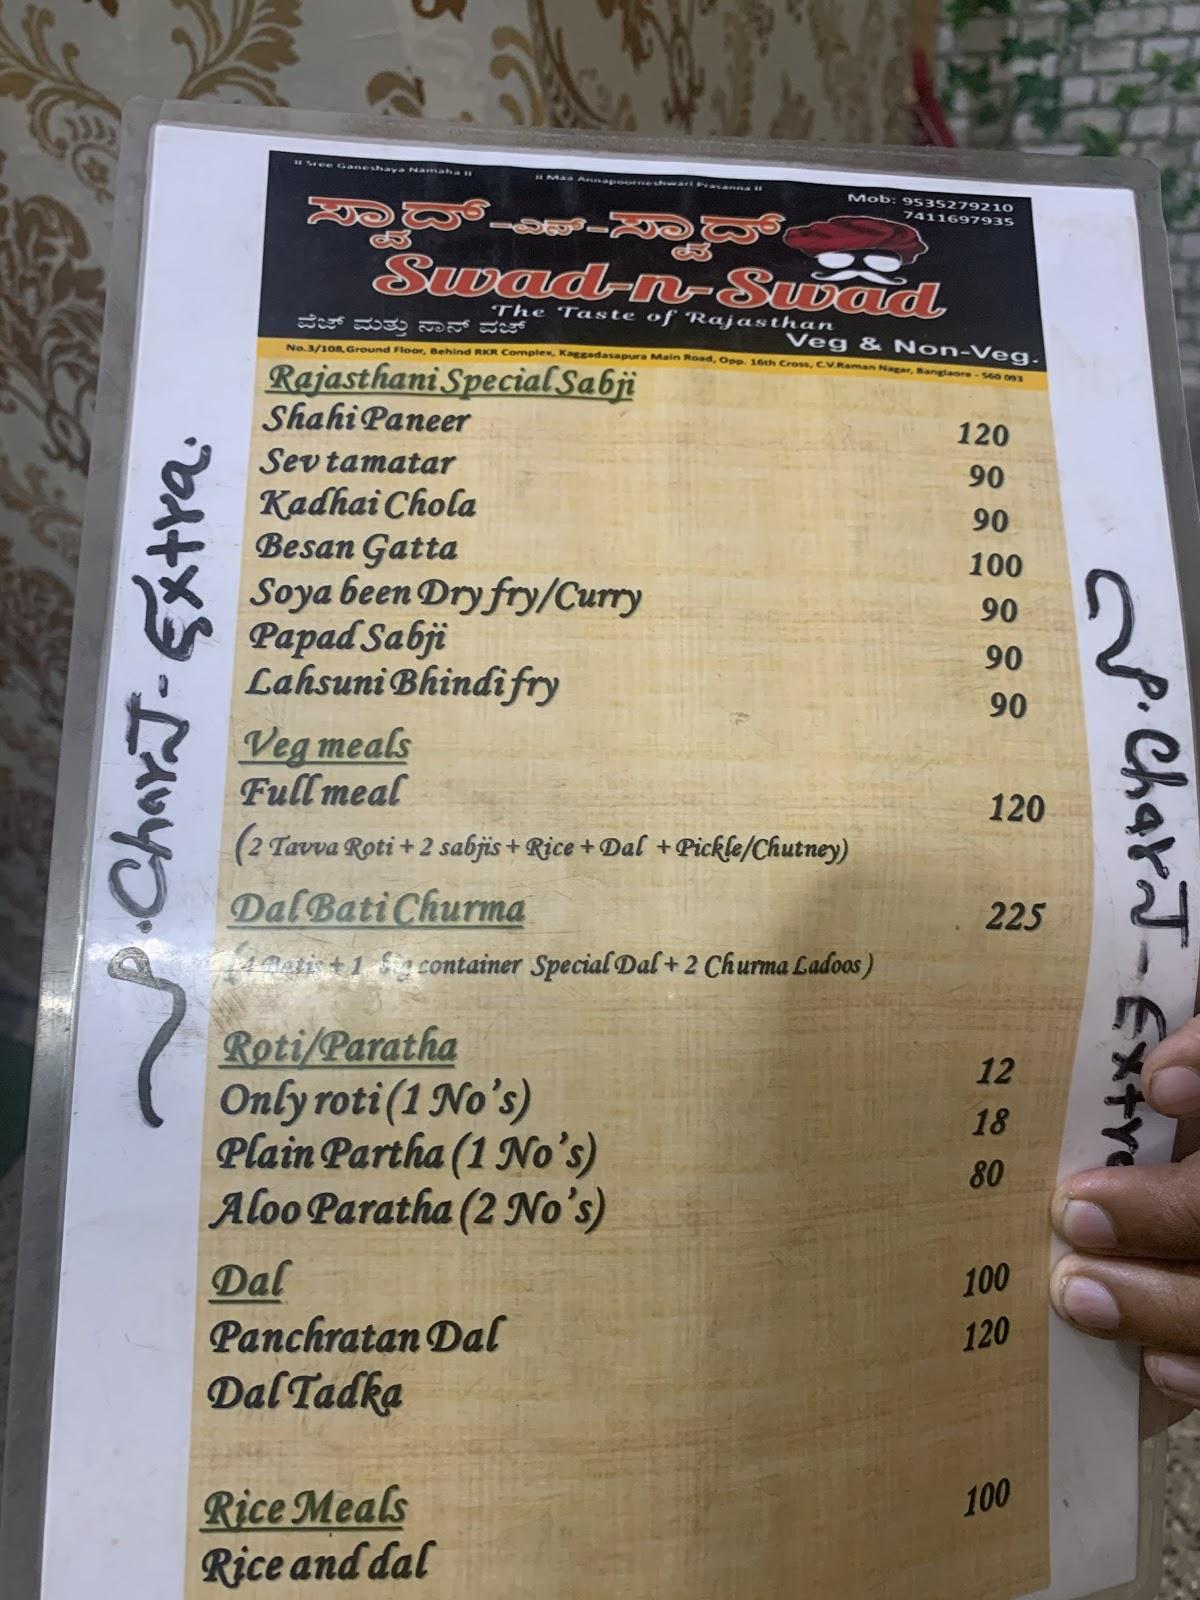 II Sree Ganeshaya Namaha II
II Maa Annapoorneshwari Prasanna II
Mob: 9535279210
7411697935
ಸ್ವಾದ್-ಎನ್-ಸ್ವಾದ್
Swad-n-Swad
The Taste of Rajasthan
ವೆಜ್ ಮತ್ತು ನಾನ್ ವೆಜ್
Veg & Non-Veg.
No.3/108,Ground Floor, Behind RKR Complex, Kaggadasapura Main Road, Opp. 16th Cross, C.V.Raman Nagar, Banglaore - 560 093
Rajasthani Special Sabji
Shahi Paneer 120
Sev tamatar 90
Kadhai Chola 90
Besan Gatta 100
Soya been Dry fry/Curry 90
Papad Sabji 90
Lahsuni Bhindi fry 90
Veg meals
Full meal 120
(2 Tavva Roti + 2 sabjis + Rice + Dal + Pickle/Chutney)
Dal Bati Churma 225
(4 Batis + 1 big container Special Dal + 2 Churma Ladoos)
Roti/Paratha
Only roti (1 No's) 12
Plain Partha (1 No's) 18
Aloo Paratha (2 No's) 80
Dal
Panchratan Dal 100
Dal Tadka 120
Rice Meals
Rice and dal 100
P.Charj-Extra.
P.Charj-Extra